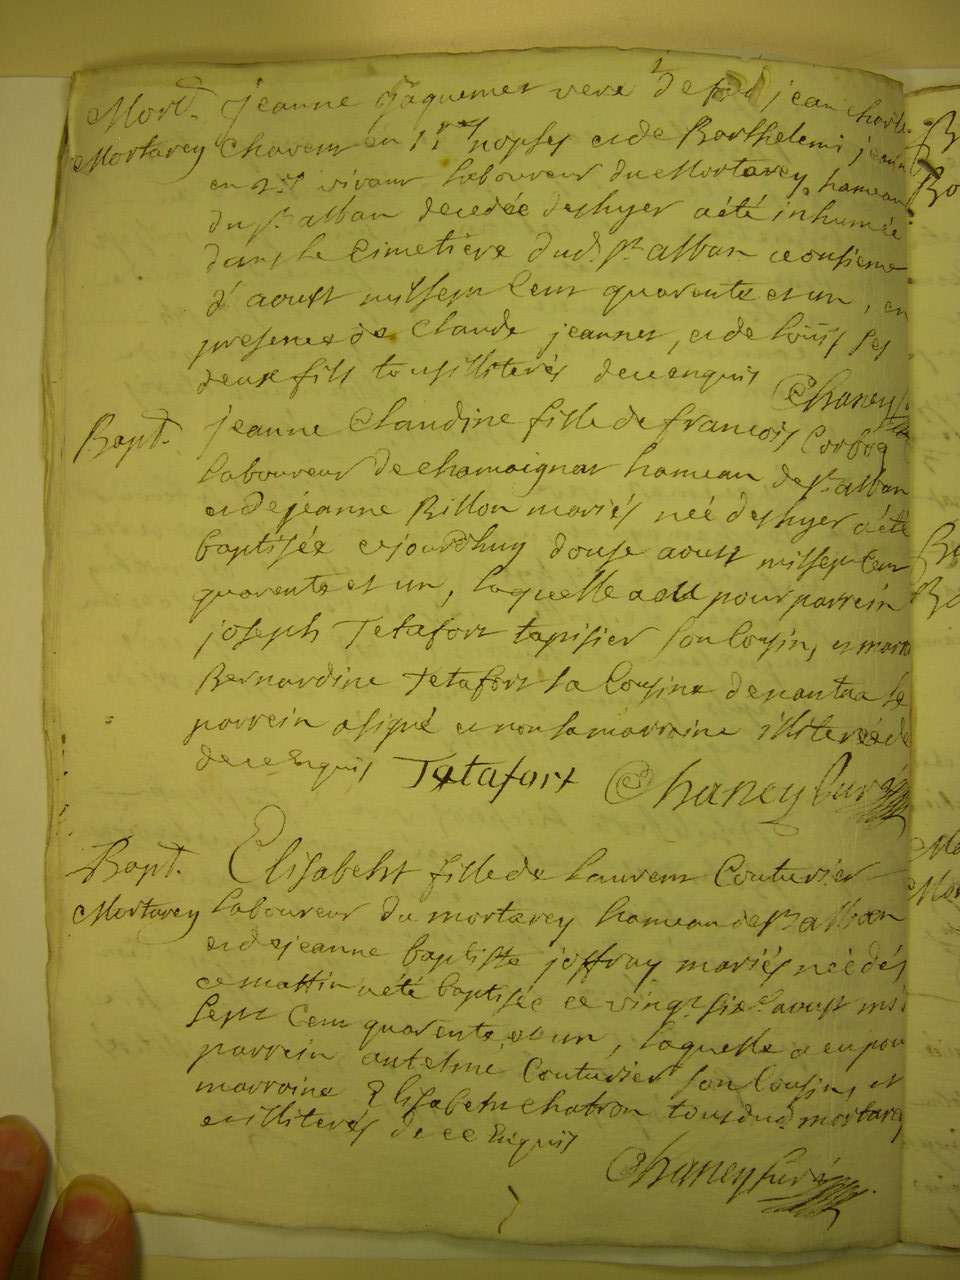 Mort. Jeanne Jaquemet veve de feu jean charle
Mortarey Chavent en 1res nopses et de Barthelemi jeann
en 2des vivant laboureur du Mortarey hameau
du st alban decedée deshyer a été inhumée
dans le cimetière dud. st alban ce onsieme
d'aoust mil sept cent quarente et un, en
presence de Claude jeannet, et de loüis ses
deux fils tous illiterés de ce enquis Chaney
Bapt. jeanne Claudine fille de francois Corbog
laboureur de chamoignat hameau de st alban
et de jeanne Billon mariés née deshyer a été
baptisée ce jourdhuy douse aoust mil sept cent
quarente et un, laquelle a eu pour parrein
joseph Tetafort tapisier son Cousin, et marr
Bernardine Tetafort sa Cousine de nantua le
parrein a signé et non la marraine illiterée de
de ce Enquis Tetafort Chaney Curé
Bapt. Elisabeht fille de laurent Couturier
Mortarey laboureur du mortarey hameau de st alban
et de jeanne baptiste joffray mariés née dés
ce mattin a été baptisée ce vingt six e aoust mil
sept Cent quarente et un, laquelle a eu pou
parrein antelme Couturier son Cousin, et
marraine Elisabeht chatron tous dud. mortarey
et illiterés de ce Enquis
Chaney Curé